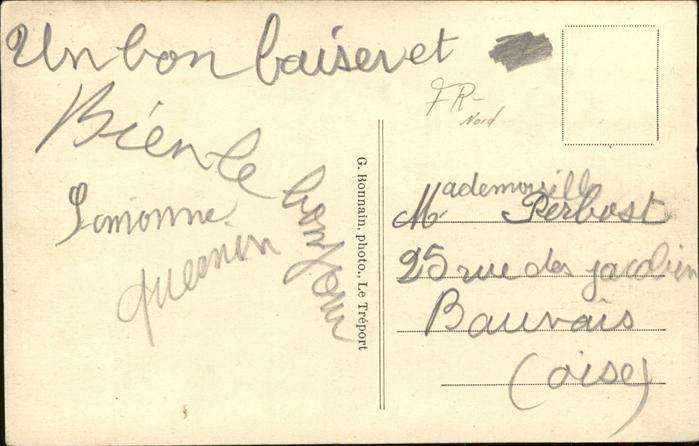 Un bon baiser et
Bien le bonjour
Simonne
FR-
Nord
G. Bonnain, photo., Le Tréport
Mademoiselle Perbost
25 rue des jacobin
Beauvais
(oise)